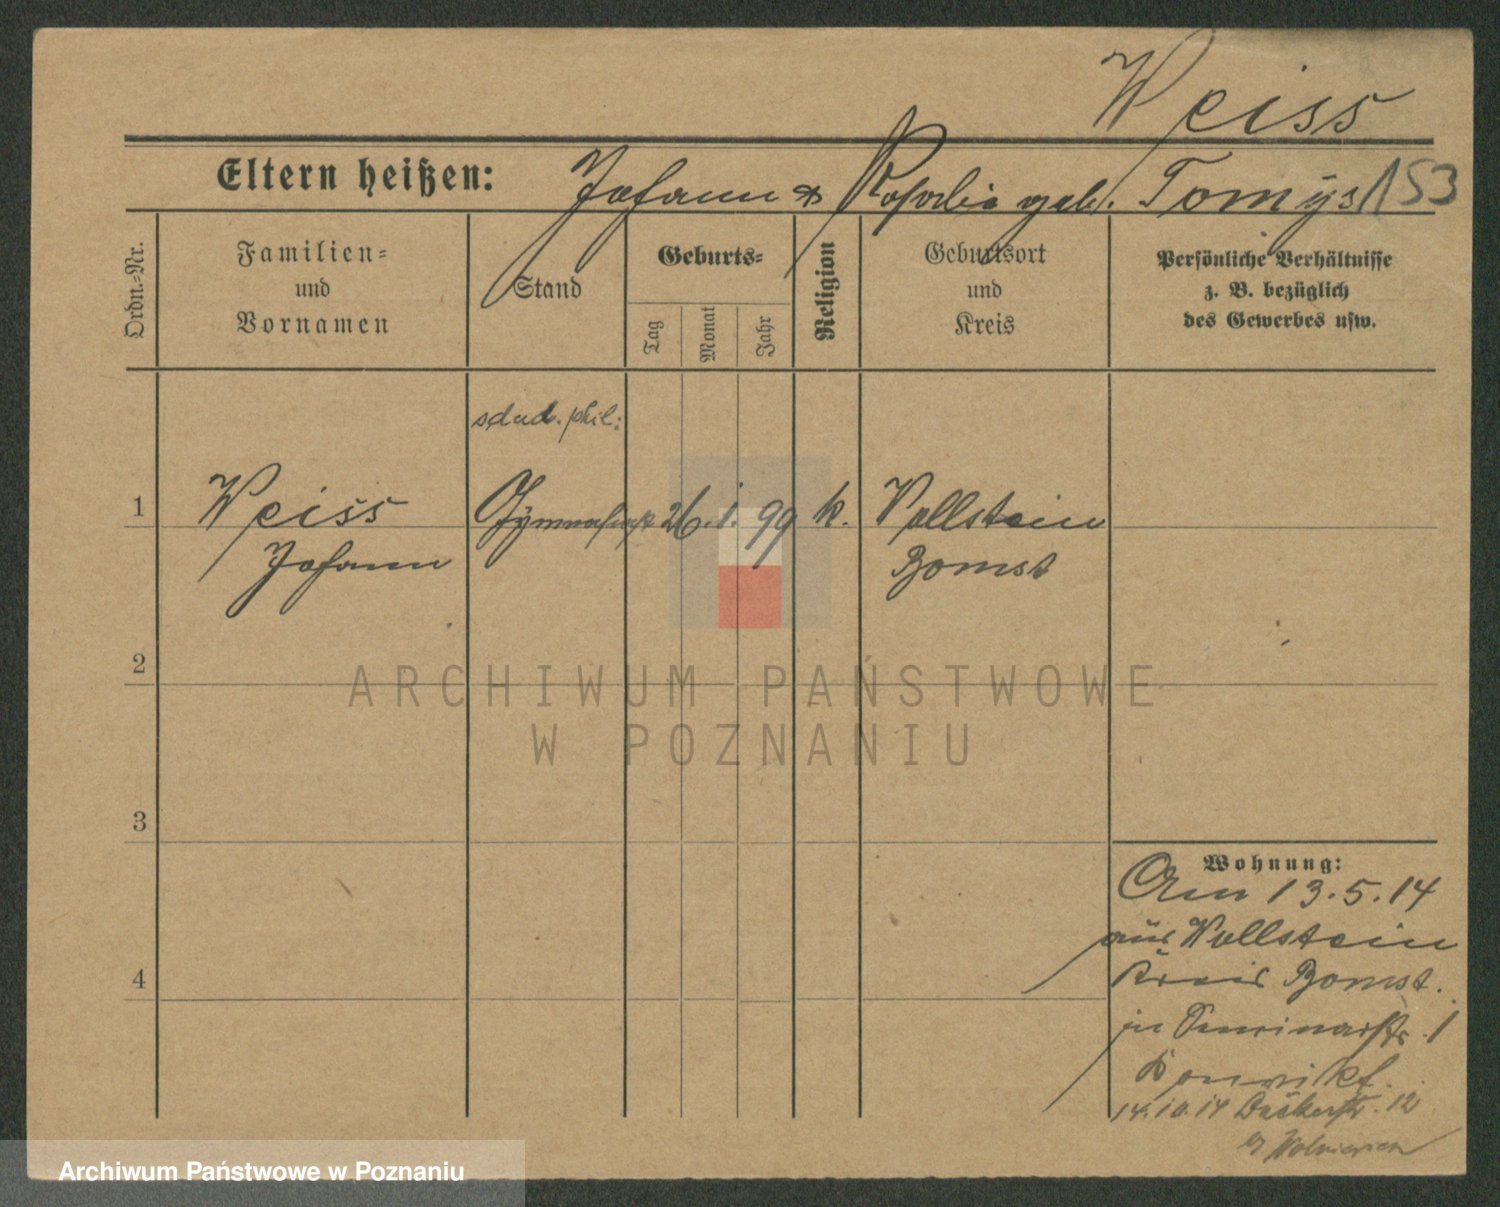 Weiss
Eltern heißen: Johann & Rosalie geb. Tomys 153
Ordn.-Nr.
Familien-
und
Vornamen
Stand
Geburts-
Tag
Monat
Jahr
Religion
Geburtsort
und
Kreis
Persönliche Verhältnisse
z. B. bezüglich
des Gewerbes usw.
stud. phil:
1 Weiss Gymnasiast 26. 1. 99 k. Wollstein
Johann Bomst
2
3
4
Wohnung:
Am 13.5.14
aus Wollstein
Kreis Bomst.
in Seminarstr. 1
Konvikt.
14.10.14 12
ARCHIWUM PAŃSTWOWE
W POZNANIU
Archiwum Państwowe w Poznaniu